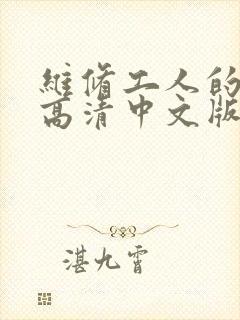 維脩工人的
高清中文版
湛九霄